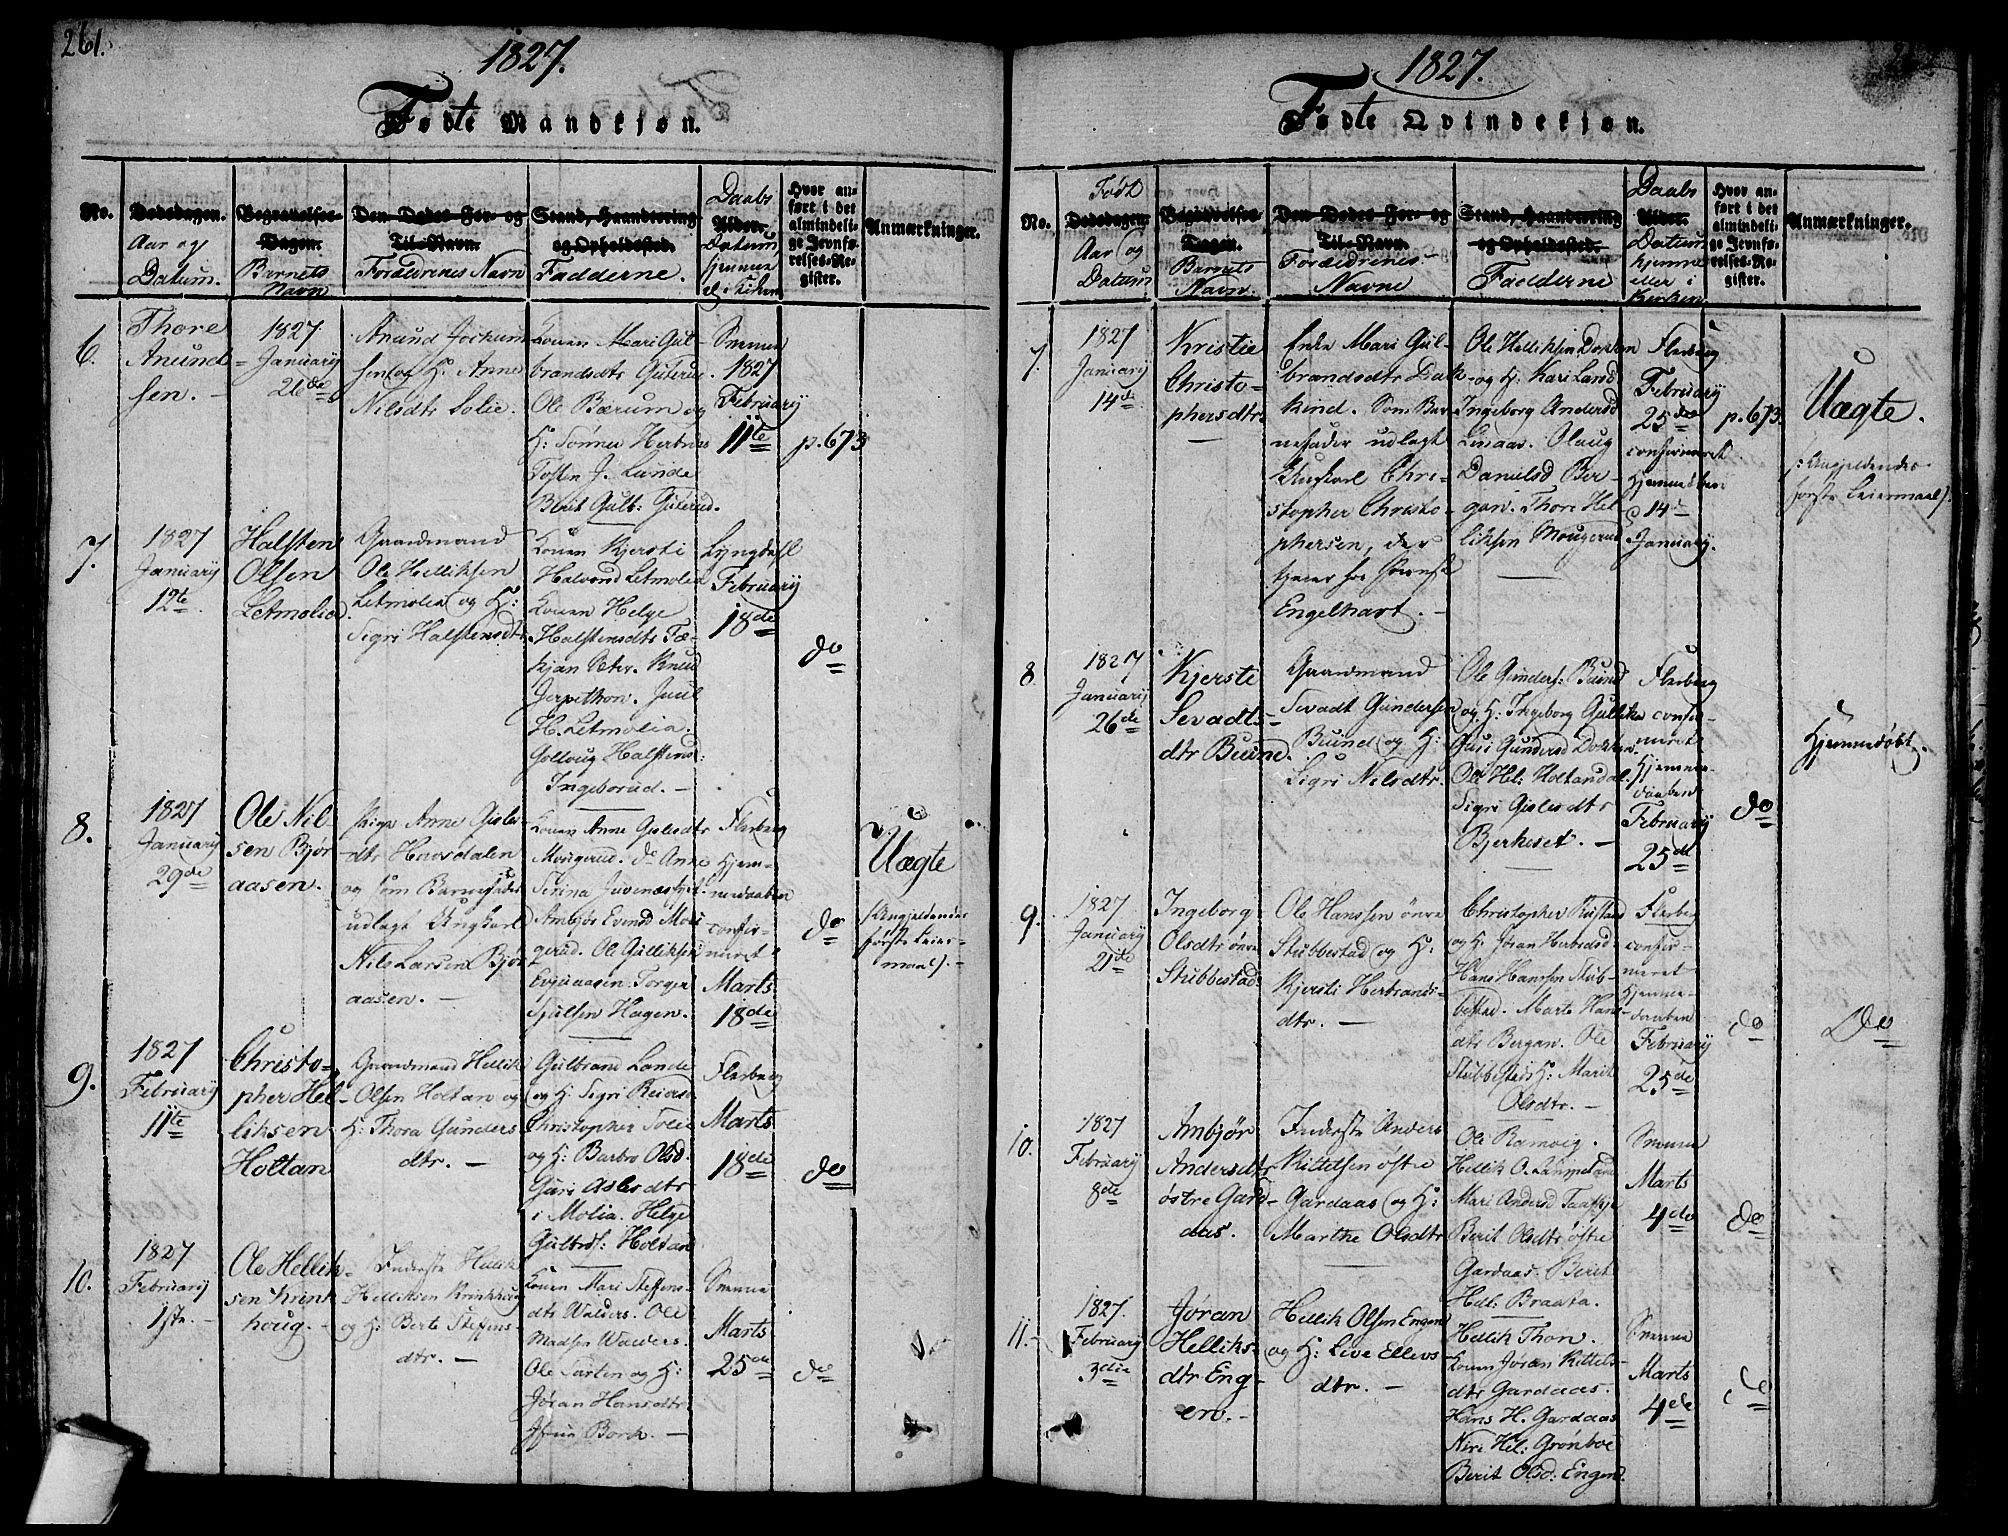 261.
1827.
Fødte Mandkjøn.
No.
Dødsdagen.
Aar og
Datum.
Begravelses-
Dagen.
Barnets
Navn
Den Dødes For- og
Til-Navn.
Forældrenes Navn
Stand, Haandtering
og Opholdssted.
Fadderne.
Daabs
Alder.
Datum,
hjemme
el. i Kirken
Hvor an-
ført i det
almindeli-
ge Jevnfø-
relses-Re-
gister.
Anmærkninger.
6.
Thore
Anund-
sen.
1827
January
26de
Anund Jochum-
sen og H: Anne
Nilsdtr Solie.
Konen Mari Gul-
brandsdtr Guterud.
Ole Bærum og
H:
Tosten J. Lunde
Berit Gulb: Guterud.
Svenne
1827
February
11te
p. 673
7.
1827
January
12te
Halsten
Olsen
Letmolia
Gaardmand
Ole Helliksen
Letmolia og H:
Sigri Halstensdtr
Konen Kjersti
Halvorsd Letmolia
Konen Helge
Halstensdtr
Peter. Knud
Juul
H. Letmolia.
Golloug Halstensd:
Ingeborud.
Lyngdahl
February
18de
do
8.
1827
January
29de
Ole Nil-
sen Bjør-
aasen.
Pige Anne Gisles-
dtr Hovsdalen
og som Barnefader
udlagt Ungkarl
Nils Larsen Bjør-
aasen.
Konen Anne Gislesdtr
Mougerud. Do Anne
Serina
Ambjør Evensd Mou-
gerud. Ole Gulliksen
Evjuaasen. Torger
Hagen.
Flesberg
Hjem-
medaaben
confir-
meret
Marts
18de
do
Uægte
(Angjeldendes
første Leier-
maal).
9.
1827
February
11te
Christo-
pher Hel-
liksen
Holtan
Gaardmand Hellik
Olsen Holtan og
H: Thora Gunders-
dtr.
Gulbrand Lande
og H: Sigri Reiersd.
Christopher
og H: Barbro Olsd.
Guri Aslesdtr
i Molia. Helge
Gulbrds: Holtan
Flesberg
Marts
18de
do
10.
1827
February
1ste.
Ole Hellik-
sen Krink-
houg.
Inderste Hellik
Helliksen Krinkhoug
og H: Berte Steffens-
dtr.
Konen Mari Steffens-
dtr Walders. Ole
Madsen Walders.
Ole og H:
Jøran Hansdtr
Svenne
Marts
25de
do
1827.
Fødte Qvindekjøn.
No.
Født
Dødsdagen.
Aar og
Datum
Begravelses-
Dagen.
Barnets
Navn.
Den Dødes For- og
Til-Navn.
Forældrenes
Navne
Stand, Haandtering
og Opholdssted.
Fadderne
Daabs
Alder.
Datum
hjemme
eller i
Kirken
Hvor an-
ført i det
almindeli-
ge Jevnfø-
relses-Re-
gister.
Anmærkninger.
7.
1827
January
14de
Kristie
Christo-
phersdtr.
Enke Mari Gul-
brandsdtr Bak-
kind. Som Bar-
nefader udlagt
Ungkarl Chri-
stopher Christo-
phersen, der
tjener hos
Engelhart.
Ole Helliksen Dokken
og H: Kari Larsd
Ingeborg Andersd
Linaas. Olaug
Danielsd Ber-
gan. Thore Hel-
liksen Mougerud
Flesberg
February
25de
confirmeret
Hjemmedøbt
14de
January.
p. 673.
Uægte.
(: Angjeldendes
første Leiermaal).
8.
1827
January
26de
Kjersti
Sevadts-
dtr Buind.
Gaardmand
Sevadt Gundersen
Buind og H:
Sigri Nilsdtr
Ole Gunders: Buind
og H: Ingeborg Gulliks
Guri Gundersd Dokken.
Ole Hel: Holtandal.
Sigri Gislesdtr
Bjerkeset.
Flesberg
confir-
meret
Hjemme-
daaben
February
25de
do
Hjemmedøbt.
9.
1827
January
21de
Ingeborg
Olsdtr øvre
Stubbestad
Ole Hanssen øvre
Stubbestad og H:
Kjersti Herbrands-
dtr.
Christopher Ristand
og H: Jøran Herbrdsd
Hans Hanssen Stub-
bestad. Marte Hans-
dtr Bergan. Ole
Stubbestad H: Marit
Olsdtr.
Flesberg
confir-
meret
Hjemme-
daaben
February
25de
do
Do
10.
1827
February
8de
Ambjør
Andersdtr
østre Gard-
aas.
Inderste Anders
Kittelsen østre
Gardaas og H:
Marthe Olsdtr
Ole Ramvig.
Hellik O.
Mari Andersd
Berit Olsdtr østre
Gardaas. Berit
Hel: Braata.
Svenne
Marts
4de
do
11.
1827.
February
3die
Jøran
Helliks-
dtr Eng-
en.
Hellik Olsen Engen
og H: Live Ellevs-
dtr.
Hellik Thon.
Konen Jøran Kittels-
dtr Gardaas.
Hans H. Gardaas
Niri Hel: Grønboe
Berit Olsd: Engen.
Svenne
Marts
4de
do